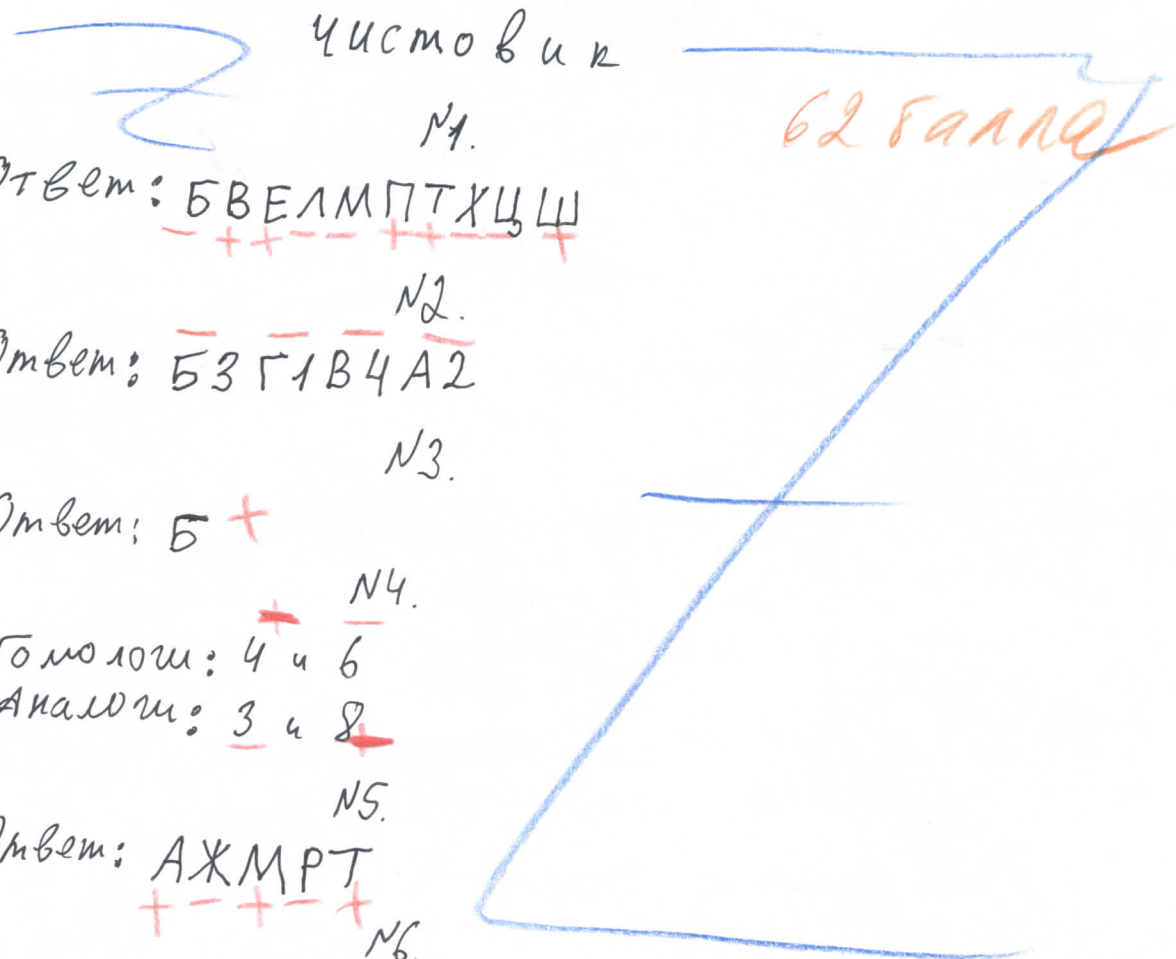 чистовик
62 балла
N1.
Ответ: БВЕЛМПТХЦШ
- + + - - + + - - +
N2.
- - - -
Ответ: Б3 Г1 В4 А2
N3.
Ответ: Б +
N4.
+ -
Гомологи: 4 и 6
Аналоги: 3 и 8
- +
N5.
Ответ: АЖМРТ
+ - + - +
N6.